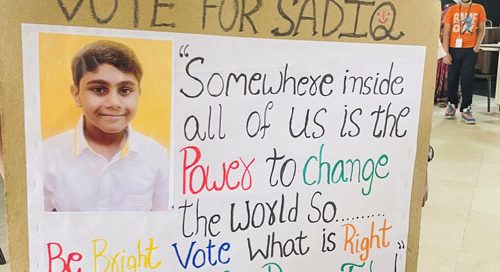 VOTE FOR SADIQ
"Somewhere inside
all of us is the
Power to change
the World So.........
Be Bright Vote What is Right